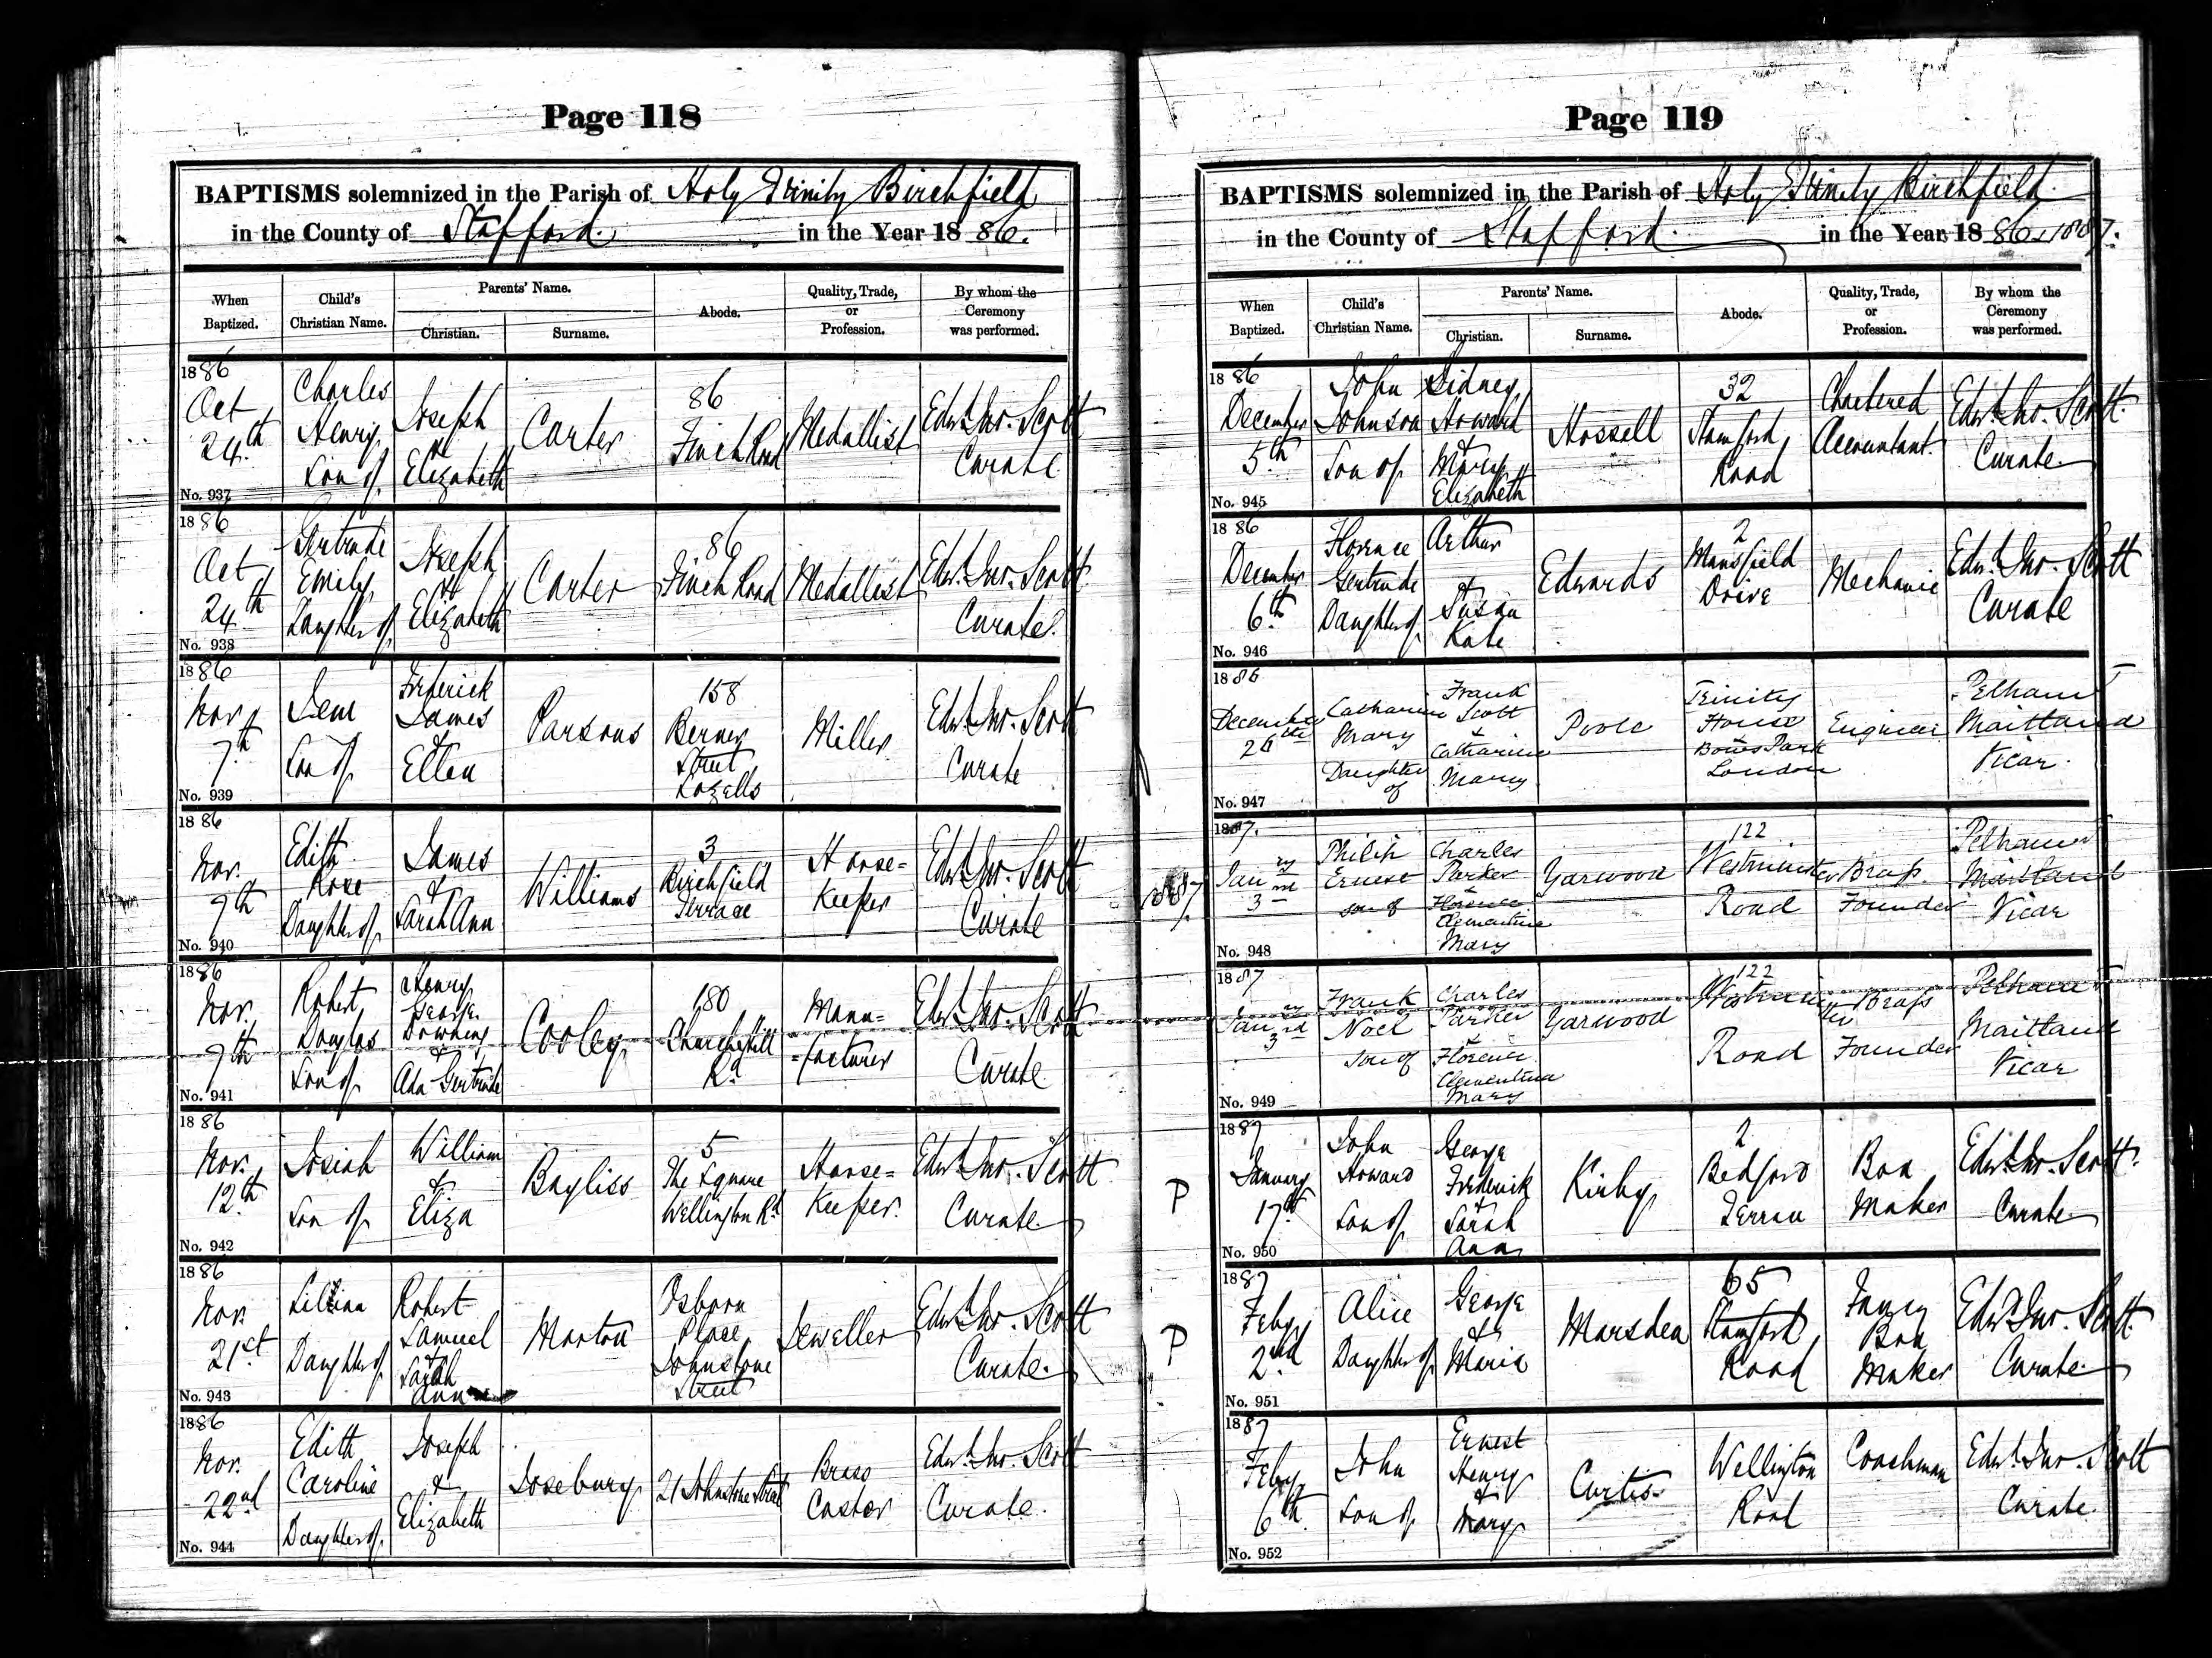 Page 118
BAPTISMS solemnized in the Parish of Holy Trinity Birchfield
in the County of Stafford. in the Year 1886.
When Baptized. Child's Christian Name. Parents' Name. Christian. Surname. Abode. Quality, Trade, or Profession. By whom the Ceremony was performed.
1886
Oct 24th
Charles Henry Son of
Joseph & Elizabeth
Carter
86 Finch Road
Medallist
Edwd. Jno. Scott Curate
No. 937
1886
Oct 24th
Gertrude Emily Daughter of
Joseph & Elizabeth
Carter
86 Finch Road
Medallist
Edwd. Jno. Scott Curate.
No. 938
1886
Nov 7th
Son of
Frederick James & Ellen
Parsons
158 Berner Street Lozells
Miller
Edwd. Jno. Scott Curate
No. 939
1886
Nov. 9th
Edith Rose Daughter of
James & Sarah Ann
Williams
3 Birchfield Terrace
Horse=Keeper
Edwd. Jno. Scott Curate
No. 940
1886
Nov. 9th
Robert Douglas Son of
Henry George Downing & Ada Gertrude
Cooley
180 Churchhill Rd
Manu=
=facturer
Edwd. Jno. Scott Curate
No. 941
1886
Nov. 12th
Josiah Son of
William & Eliza
Bayliss
5 The Square Wellington Rd
Horse=Keeper.
Edwd. Jno. Scott Curate.
No. 942
1886
Nov. 21st
Daughter of
Robert Samuel & Sarah Ann
Morton
Osborn Place Johnstone Street
Jeweller
Edwd. Jno. Scott Curate.
No. 943
1886
Nov. 22nd
Edith Caroline Daughter of
Joseph & Elizabeth
Josebury
21 Johnstone Street
Brass Caster
Edwd. Jno. Scott Curate.
No. 944
Page 119
BAPTISMS solemnized in the Parish of Holy Trinity Birchfield.
in the County of Stafford. in the Year 1886, 1887.
When Baptized. Child's Christian Name. Parents' Name. Christian. Surname. Abode. Quality, Trade, or Profession. By whom the Ceremony was performed.
1886
December 5th
John Johnson Son of
Sidney Howard & Mary Elizabeth
Hossell
32 Stamford Road
Chartered Accountant.
Edwd. Jno. Scott. Curate
No. 945
1886
December 6th
Florence Gertrude Daughter of
Arthur & Susan Kate
Edwards
2 Mansfield Drive
Mechanic
Edwd. Jno. Scott Curate
No. 946
1886
December 26th
Catharine Mary Daughter of
Frank Scott & Catharine Mary
Poole
Trinity House Bowes Park London
Engineer
Pelham Maitland Vicar.
No. 947
1887.
1887
Jany 3rd
Philip Ernest son of
Charles Parker & Florence Clementina Mary
Yarwood
122 Westminster Road
Brass Founder
Pelham Maitland Vicar
No. 948
1887
Jany 3rd
Frank Noel son of
Charles Parker & Florence Clementina Mary
Yarwood
122 Westminster Road
Brass Founder
Pelham Maitland Vicar
No. 949
P
1887
January 17th
John Howard Son of
George Frederick & Sarah Ann
Kirby
2 Bedford Terrace
Box Maker
Edwd. Jno. Scott. Curate
No. 950
P
1887
Feby 2nd
Alice Daughter of
George & Maria
Marsden
65 Stamford Road
Fancy Box Maker
Edwd. Jno. Scott. Curate
No. 951
1887
Feby 6th
John Son of
Ernest Henry & Mary
Curtis
Wellington Road
Coachman
Edwd. Jno. Scott Curate.
No. 952